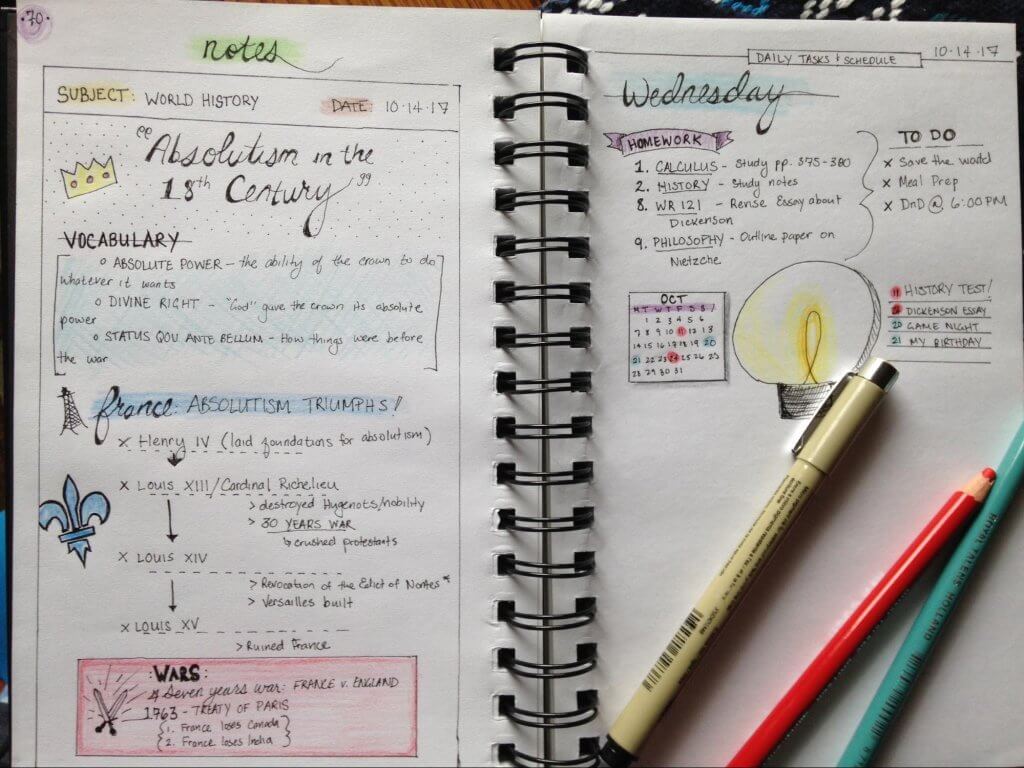 70
notes
SUBJECT: WORLD HISTORY DATE: 10·14·17
"Absolutism in the
18th Century"
VOCABULARY
o ABSOLUTE POWER - the ability of the crown to do
whatever it wants
o DIVINE RIGHT - "God" gave the crown its absolute
power
o STATUS QOU ANTE BELLUM - How things were before
the war
france: ABSOLUTISM TRIUMPHS!
x Henry IV (laid foundations for absolutism)
x LOUIS XIII/Cardinal Richelieu
> destroyed Hugenots/nobility
> 30 YEARS WAR
↳ crushed protestants
x LOUIS XIV
> Revocation of the Edict of Nantes*
> Versailles built
x LOUIS XV
> Ruined France
:WARS:
Seven years war: FRANCE V. ENGLAND
1763 - TREATY OF PARIS
1. France loses Canada
2. France loses India
DAILY TASKS & SCHEDULE 10·14·17
Wednesday
HOMEWORK
1. CALCULUS - Study pp. 375-380
2. HISTORY - Study notes
8. WR 121 - Revise Essay about
Dickenson
9. PHILOSOPHY - Outline paper on
Nietzche
TO DO
x Save the world
x Meal Prep
x DnD @ 6:00 PM
OCT
M T W T F S S
1 2 3 4 5 6
7 8 9 10 11 12 13
14 15 16 17 18 19 20
21 22 23 24 25 26 27
28 29 30 31
11 HISTORY TEST!
24 DICKENSON ESSAY
20 GAME NIGHT
21 MY BIRTHDAY
ROYAL TALENS HOLLAND